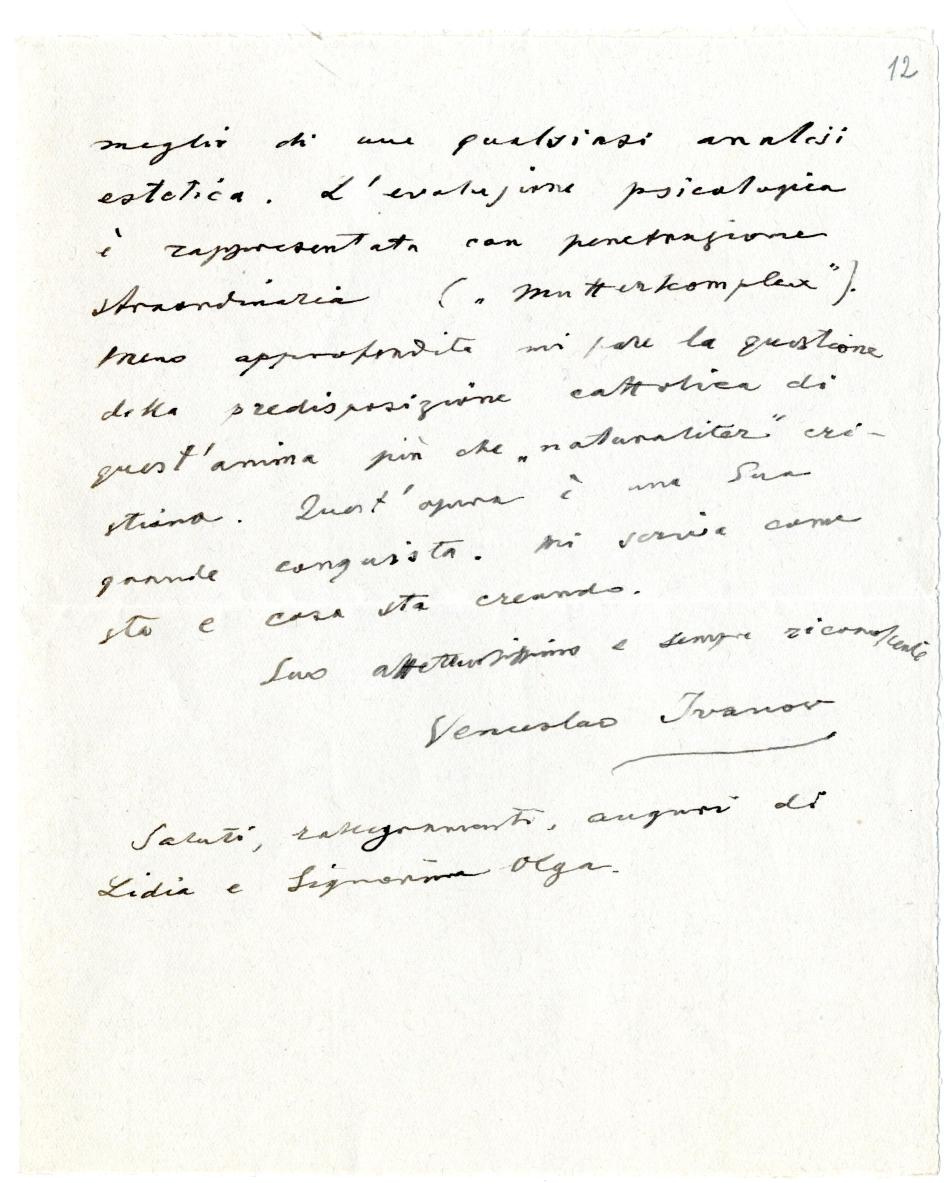 12
meglio di una qualsiasi analisi
estetica. L'evoluzione psicologica
è rappresentata con penetrazione
straordinaria („Mutterkomplex").
Meno approfondita mi pare la questione
della predisposizione cattolica di
quest'anima più che „naturaliter" cri-
stiana. Quest'opera è una Sua
grande conquista. Mi scriva come
sta e cosa sta creando.
Suo affettuosissimo e sempre riconoscente
Venceslao Ivanov
Saluti, rallegramenti, auguri di
Lidia e Signorina Olga.